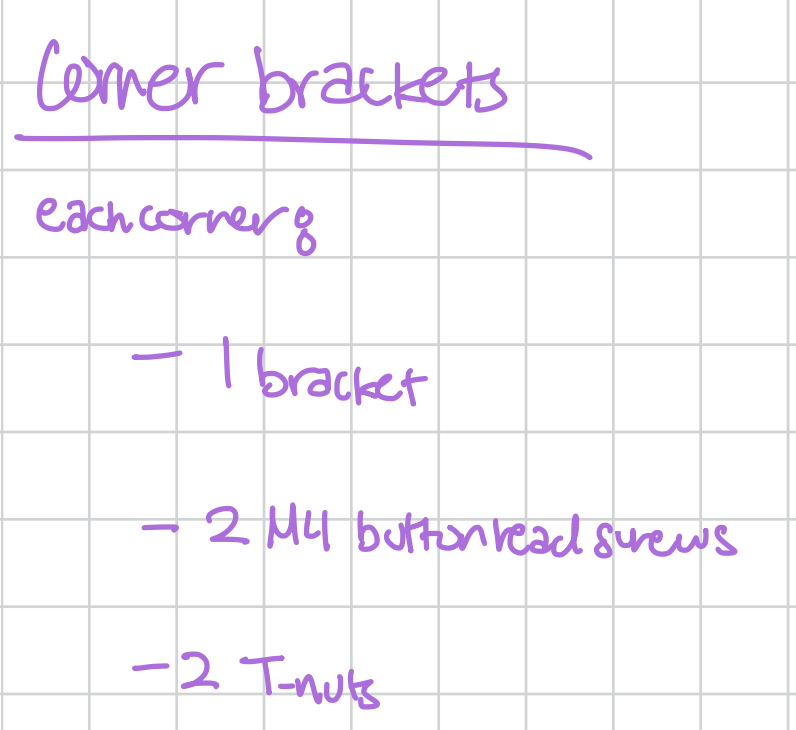 Corner brackets
each corner:
- 1 bracket
- 2 M4 button head screws
- 2 T-nuts